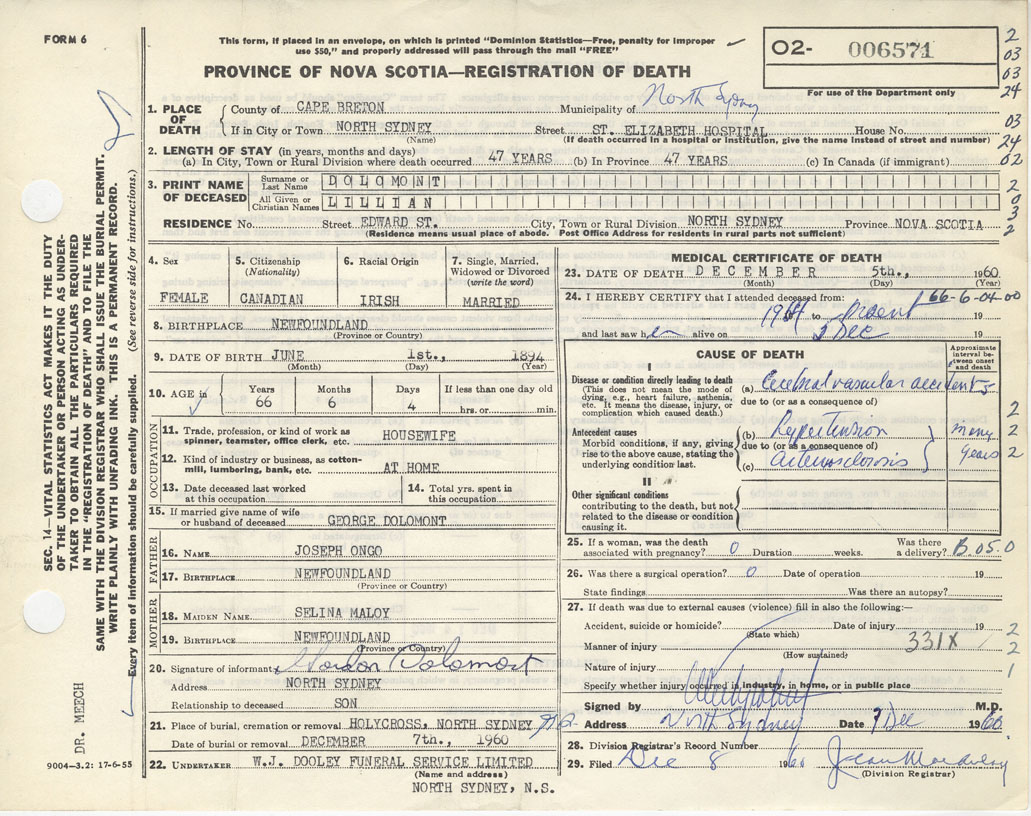 FORM 6
This form, if placed in an envelope, on which is printed "Dominion Statistics—Free, penalty for improper
use $50," and properly addressed will pass through the mail "FREE"
O2- 006571
For use of the Department only
PROVINCE OF NOVA SCOTIA—REGISTRATION OF DEATH
2
03
03
24
03
24
02
2
0
3
2
1. PLACE OF DEATH
County of CAPE BRETON Municipality of North Sydney
If in City or Town NORTH SYDNEY Street ST. ELIZABETH HOSPITAL House No.
(Name) (If death occurred in a hospital or institution, give the name instead of street and number)
2. LENGTH OF STAY (in years, months and days)
(a) In City, Town or Rural Division where death occurred 47 YEARS (b) In Province 47 YEARS (c) In Canada (if immigrant)
3. PRINT NAME OF DECEASED
Surname or Last Name DOLOMONT
All Given or Christian Names LILLIAN
RESIDENCE No. Street EDWARD ST. City, Town or Rural Division NORTH SYDNEY Province NOVA SCOTIA
(Residence means usual place of abode. Post Office Address for residents in rural parts not sufficient)
4. Sex
FEMALE
5. Citizenship
(Nationality)
CANADIAN
6. Racial Origin
IRISH
7. Single, Married,
Widowed or Divorced
(write the word)
MARRIED
8. BIRTHPLACE NEWFOUNDLAND
(Province or Country)
9. DATE OF BIRTH JUNE 1st., 1894
(Month) (Day) (Year)
10. AGE in
Years Months Days If less than one day old
66 6 4 hrs. or min.
OCCUPATION
11. Trade, profession, or kind of work as
spinner, teamster, office clerk, etc. HOUSEWIFE
12. Kind of industry or business, as cotton-
mill, lumbering, bank, etc. AT HOME
13. Date deceased last worked
at this occupation
14. Total yrs. spent in
this occupation
15. If married give name of wife
or husband of deceased GEORGE DOLOMONT
FATHER
16. NAME JOSEPH ONGO
17. BIRTHPLACE NEWFOUNDLAND
(Province or Country)
MOTHER
18. MAIDEN NAME SELINA MALOY
19. BIRTHPLACE NEWFOUNDLAND
(Province or Country)
20. Signature of informant Gordon Dolomont
Address NORTH SYDNEY
Relationship to deceased SON
21. Place of burial, cremation or removal HOLYCROSS, NORTH SYDNEY
Date of burial or removal DECEMBER 7th., 1960
22. UNDERTAKER W.J. DOOLEY FUNERAL SERVICE LIMITED
(Name and address)
NORTH SYDNEY, N.S.
MEDICAL CERTIFICATE OF DEATH
23. DATE OF DEATH DECEMBER 5th., 1960
(Month) (Day) (Year)
24. I HEREBY CERTIFY that I attended deceased from: 66-6-04-00
to present 19
and last saw her alive on 5 Dec 19
CAUSE OF DEATH
Approximate
interval be-
tween onset
and death
I
Disease or condition directly leading to death
(This does not mean the mode of
dying, e.g., heart failure, asthenia,
etc. It means the disease, injury, or
complication which caused death.)
(a) Cerebral vascular accident
due to (or as consequence of)
Antecedent causes
Morbid conditions, if any, giving
rise to the above cause, stating the
underlying condition last.
(b) Hypertension
due to (or as a consequence of)
(c) arteriosclerosis
many
years
2
2
2
II
Other significant conditions
contributing to the death, but not
related to the disease or condition
causing it.
25. If a woman, was the death
associated with pregnancy? 0 Duration weeks. Was there
a delivery? B.05.0
26. Was there a surgical operation? 0 Date of operation 19
State findings Was there an autopsy?
27. If death was due to external causes (violence) fill in also the following:—
Accident, suicide or homicide? Date of injury 19
(State which)
Manner of injury 331X
(How sustained)
Nature of injury
Specify whether injury occurred in industry, in home, or in public place
2
2
1
Signed by M.D.
Address North Sydney Date 7 Dec 1960
28. Division Registrar's Record Number
29. Filed Dec 8 1960 Jean
(Division Registrar)
SEC. 14—VITAL STATISTICS ACT MAKES IT THE DUTY
OF THE UNDERTAKER OR PERSON ACTING AS UNDER-
TAKER TO OBTAIN ALL THE PARTICULARS REQUIRED
IN THE "REGISTRATION OF DEATH" AND TO FILE THE
SAME WITH THE DIVISION REGISTRAR WHO SHALL ISSUE THE BURIAL PERMIT.
WRITE PLAINLY WITH UNFADING INK. THIS IS A PERMANENT RECORD.
Every item of information should be carefully supplied. (See reverse side for instructions.)
DR. MEECH
9004—3.2: 17-6-55